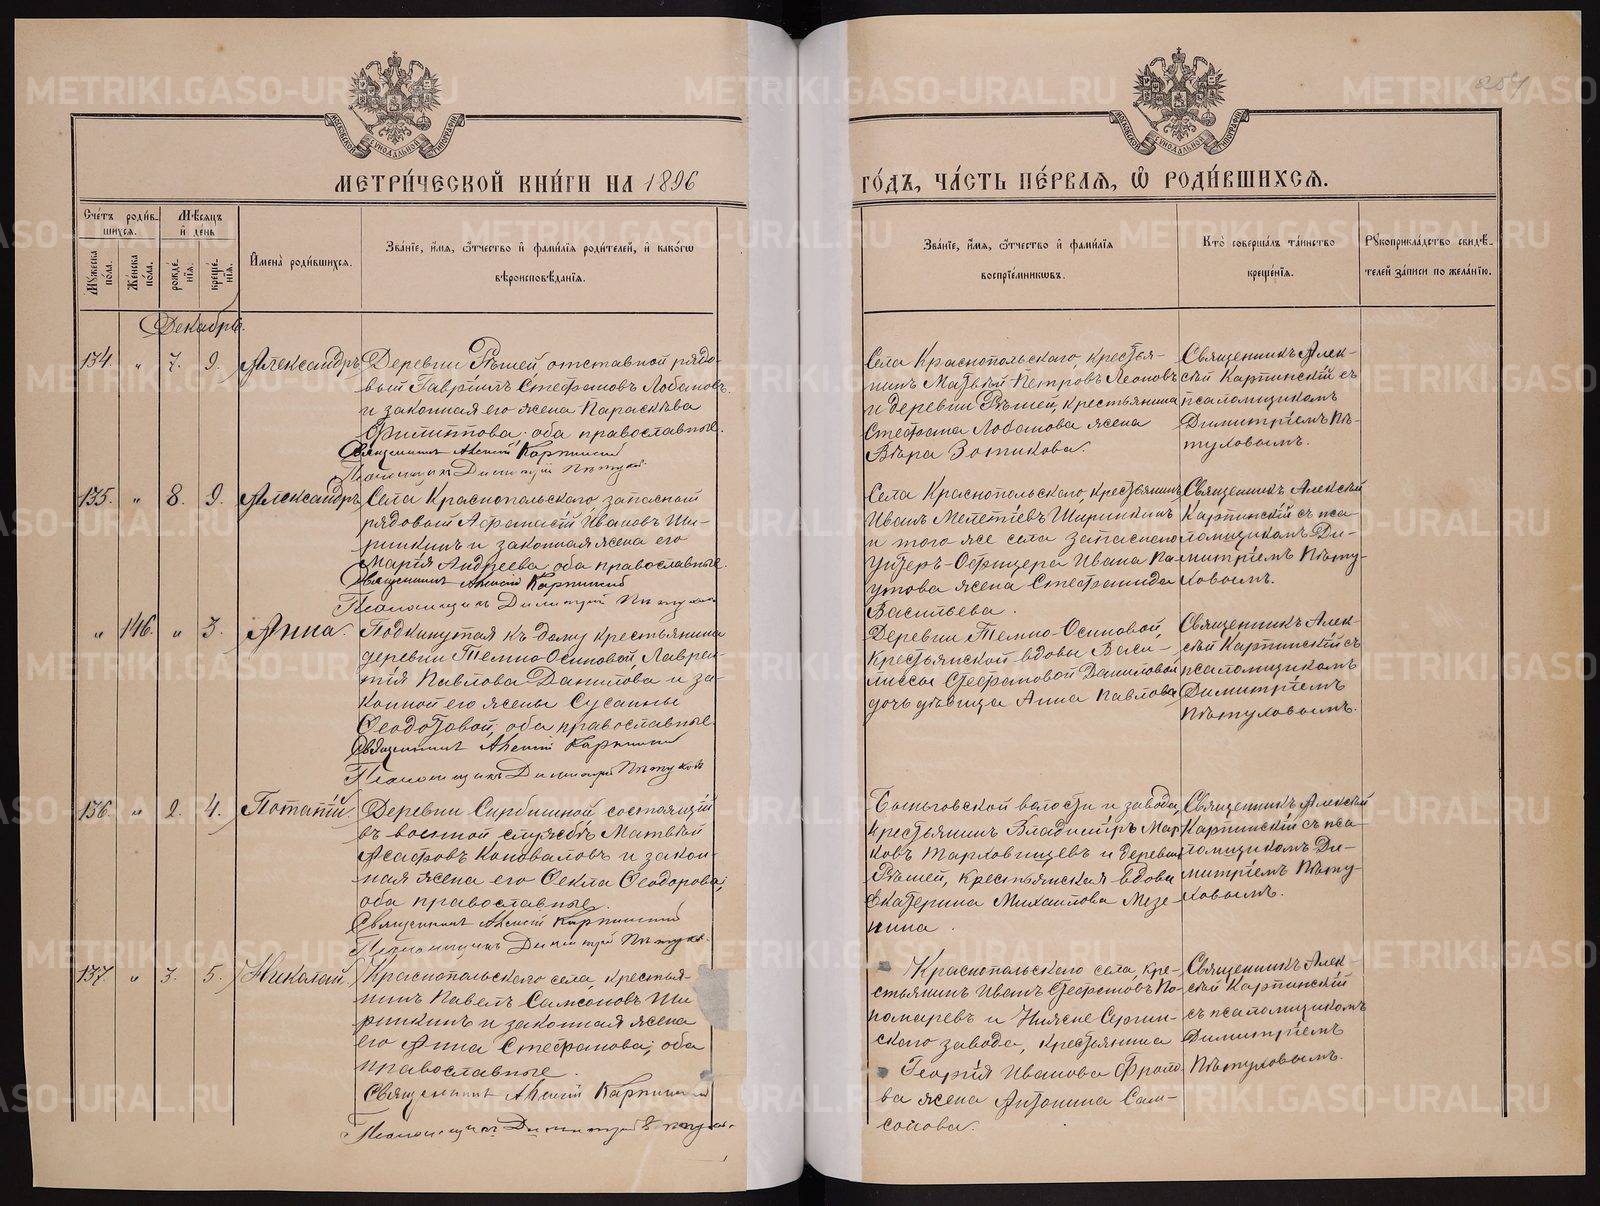 МЕТРИ́ЧЕСКОЙ КНИ́ГИ НА 1896
ГО́ДЪ, ЧА́СТЬ ПЕ́РВАЯ, Ѡ҆ РОДИ́ВШИХСЯ.
МОСКОВСКОЙ СѴНОДАЛЬНОЙ ТИПОГРАФІИ
МОСКОВСКОЙ СѴНОДАЛЬНОЙ ТИПОГРАФІИ
Сче́тъ роди́в-
шихся.
Мѣ́сяцъ
и҆ де́нь
Мꙋ́жеска по́ла.
Же́нска по́ла.
рожде́нїѧ.
креще́нїѧ.
И҆мена̀ роди́вшихся.
Зва́нїе, и҆́мя, ѻ҆́тчество и҆ фами́лїя роди́телей, и҆ како́гѡ
вѣроисповѣ́данїя.
Зва́нїе, и҆́мя, ѻ҆́тчество и҆ фами́лїя
воспрїе́мниковъ.
Кто̀ соверша́лъ та́инство
креще́нїя.
Рꙋкоприкла́дство свидѣ́-
телей за́писи по жела́нїю.
Декабрь.
134. " 7. 9. Александръ
Деревни Рѣшей, отставной рядо-
вый Гавріилъ Стефановъ Лобановъ
и законная его жена Параскева
Филиппова, оба православные.
Священникъ Алексій Карпинскій
Псаломщикъ Димитрій Пѣтухов
Села Краснопольскаго, крестья-
нинъ Матвѣй Петровъ Леоновъ
и деревни Рѣшей, крестьянина
Стефана Лобанова жена
Вѣра Зотикова.
Священникъ Алек-
сій Карпинскій съ
псаломщикомъ
Димитріемъ Пѣ-
туховымъ.
135. " 8. 9. Александръ
Села Краснопольскаго, запасный
рядовый Афанасій Ивановъ Ши-
ринкинъ и законная жена его
Марія Андреева, оба православные.
Священникъ Алексій Карпинскій
Псаломщикъ Димитрій Пѣтухов
Села Краснопольскаго, крестьянинъ
Иванъ Мелетіевъ Ширинкинъ
и того же села запаснаго
Унтеръ-Офицера Ивана Па-
утова жена Стефанида
Васильева.
Священникъ Алексій
Карпинскій съ пса-
ломщикомъ Ди-
митріемъ Пѣту-
ховымъ.
" 146. " 3. Анна.
Подкинутая къ дому крестьянина
деревни Темно-Осиновой, Лаврен-
тія Павлова Данилова и за-
конной его жены Сусанны
Феодотовой, оба православные.
Священникъ Алексій Карпинскій
Псаломщикъ Димитрій Пѣтухов
Деревни Темно-Осиновой,
крестьянской вдовы Васи-
лиссы Стефановой Даниловой
дочь дѣвица Анна Павлова
Священникъ Алек-
сій Карпинскій съ
псаломщикомъ
Димитріемъ
Пѣтуховымъ.
136. " 2. 4. Потапій
Деревни Сирбишной, состоящій
въ военной службѣ Матвѣй
Асафовъ Коноваловъ и закон-
ная жена его Фекла Феодорова,
оба православные.
Священникъ Алексій Карпинскій
Псаломщикъ Димитрій Пѣтухов
Быньговской волости и завода,
крестьянинъ Владиміръ Мар-
ковъ и деревни
Рѣшей, крестьянская вдова
Екатерина Михаилова Мезе-
нина.
Священникъ Алексій
Карпинскій съ пса-
ломщикомъ Ди-
митріемъ Пѣту-
ховымъ.
137. " 3. 5. Николай
Краснопольскаго села, крестья-
нинъ Павелъ Самсоновъ Ши-
ринкинъ и законная жена
его Анна Стефанова, оба
православные.
Священникъ Алексій Карпинскій
Псаломщикъ Димитрій Пѣтухов
Краснопольскаго села, кре-
стьянинъ Иванъ Стефановъ По-
номаревъ и Нижне Сергин-
скаго завода, крестьянина
Георгія Иванова Фроло-
ва жена Антонина Сам-
сонова.
Священникъ Алек-
сій Карпинскій
съ псаломщикомъ
Димитріемъ
Пѣтуховымъ.
METRIKI.GASO-URAL.RU